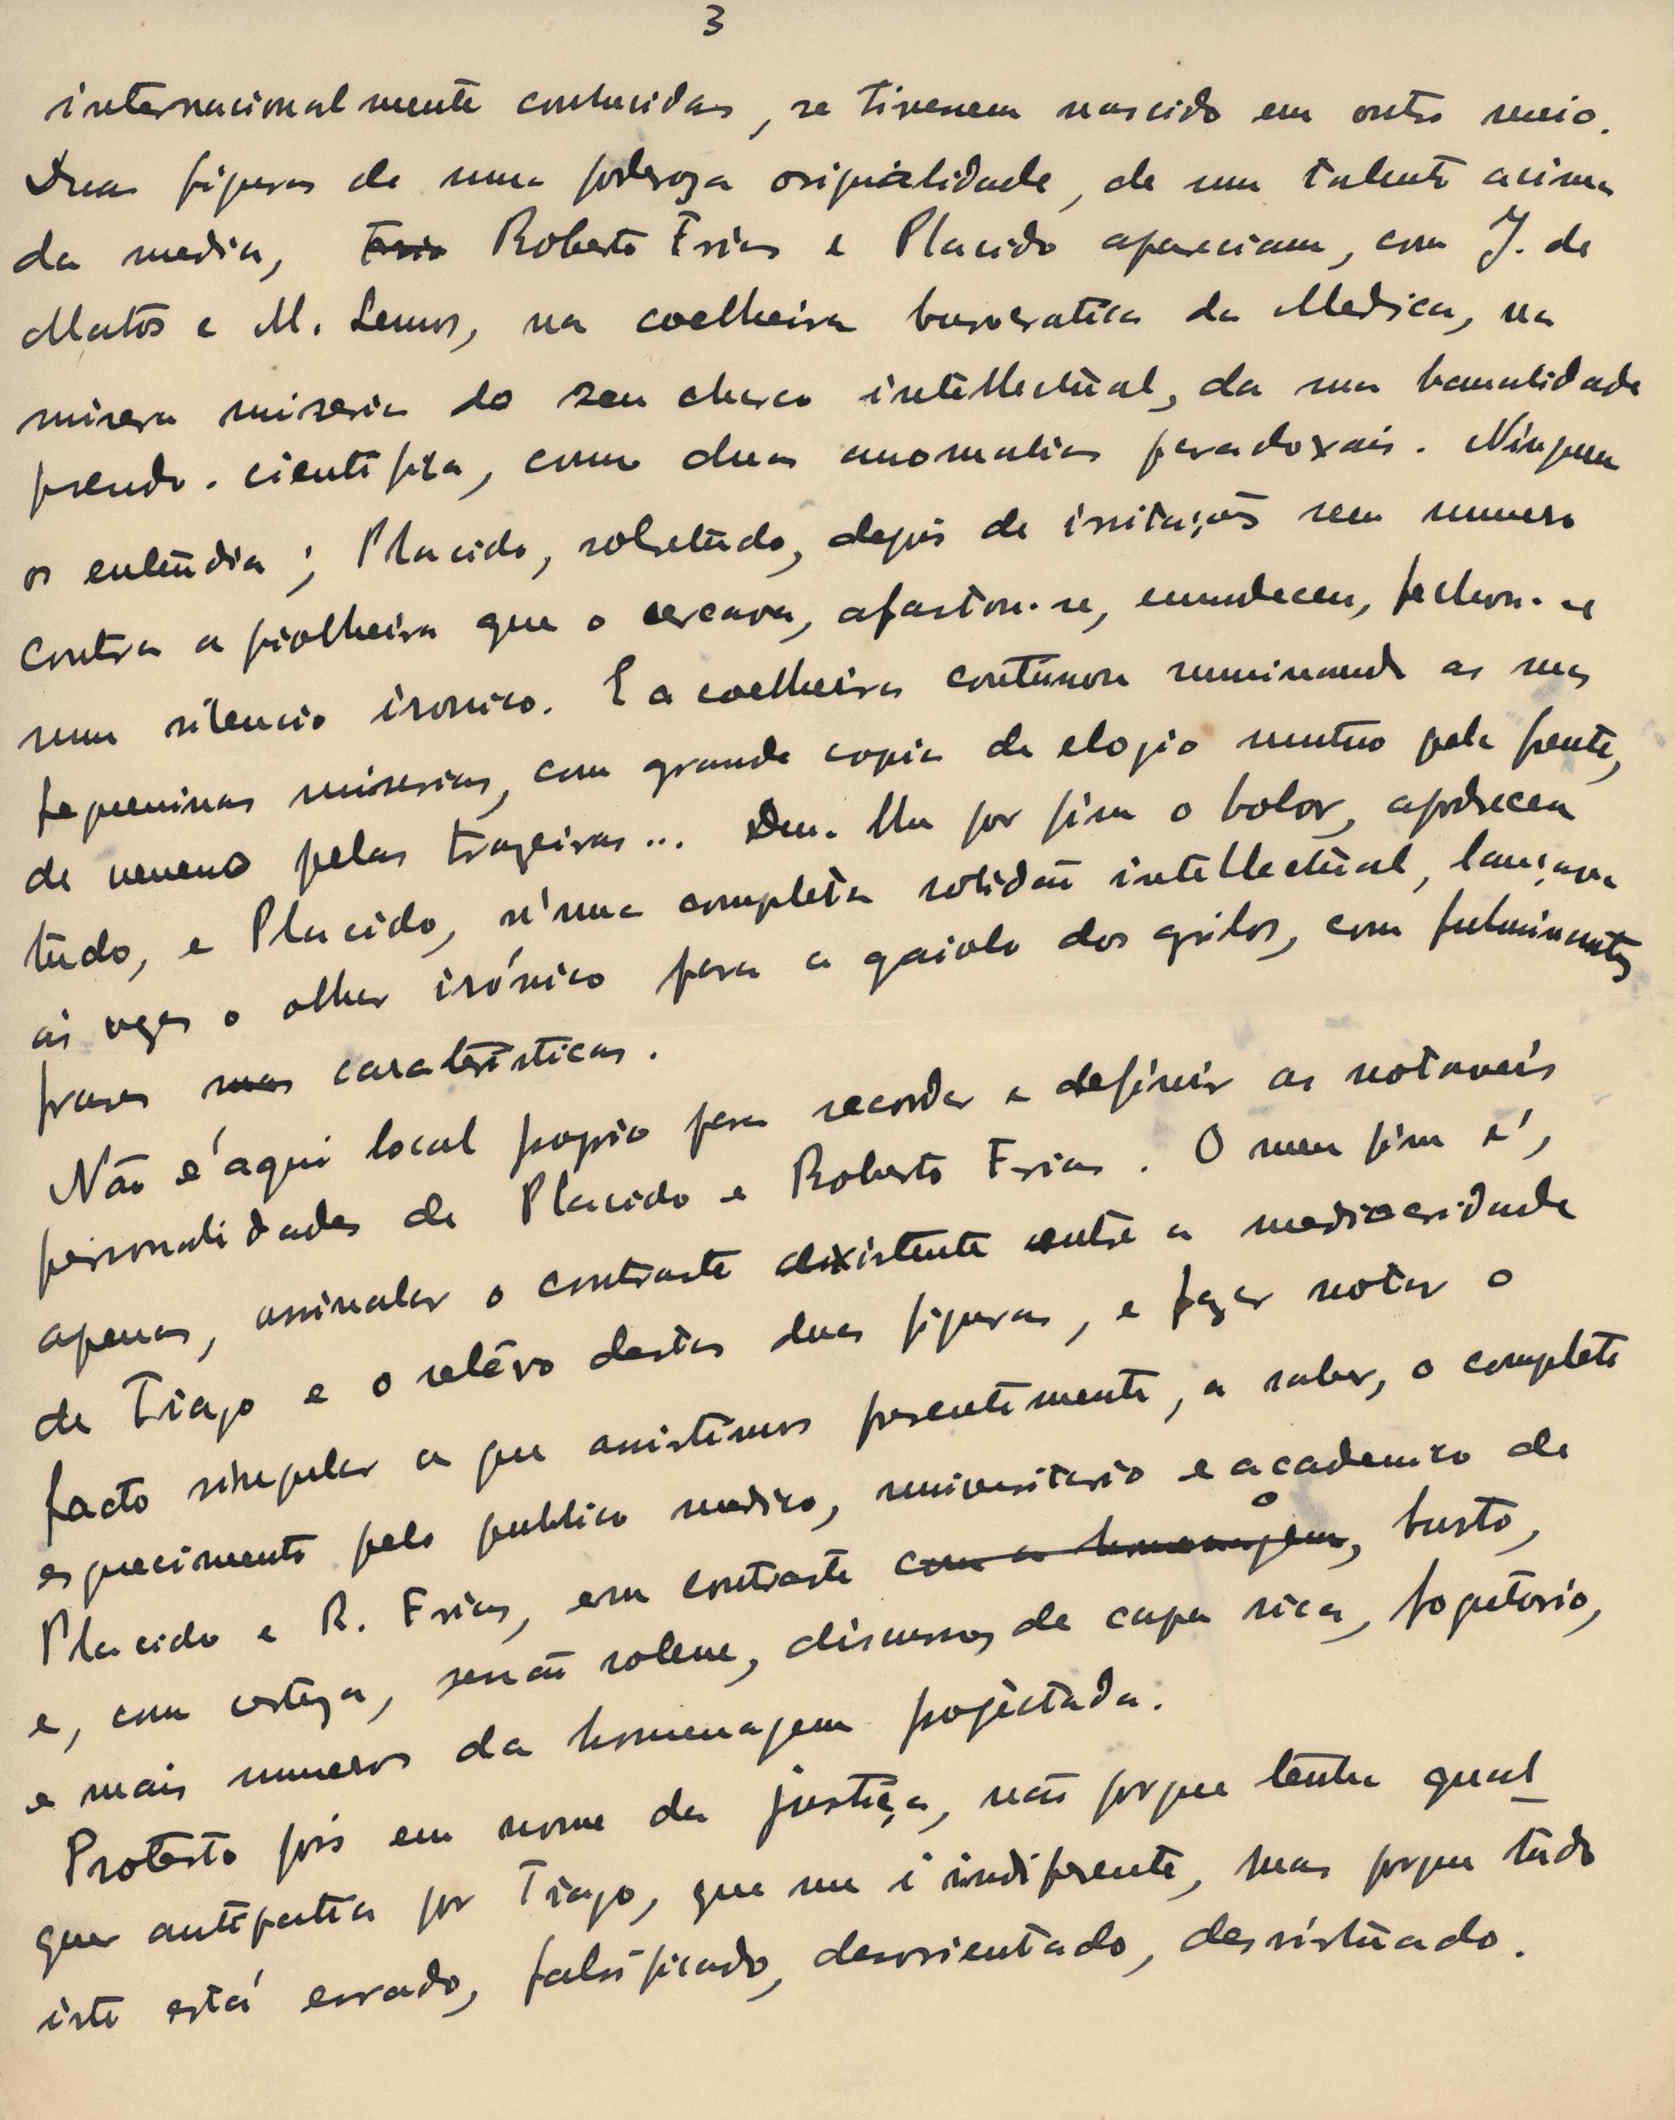 3
internacionalmente conhecidas, se tivessem nascido em outro meio.
Duas figuras de uma poderoza originalidade, de um talento acima
da media, Frias Roberto Frias e Placido apareciam, com J. de
Matos e M. Lemos, na coelheira burocratica da Medica, na
misera miseria do seu charco intellectual, da sua banalidade
pseudo-cientifica, como duas anomalias paradoxais. Ninguem
os entendia; Placido, sobretudo, depois de irritações sem numero
contra a piolheira que o cercava, afastou-se, emudeceu, fechou-se
num silencio ironico. E a coelheira continuou ruminando as suas
pequeninas miserias, com grande copia de elogio mutuo pela frente,
de veneno pelas trazeiras... Deu-lhe por fim o bolor, apodreceu
tudo, e Placido, n'uma completa solidão intellectual, lançava
ás vezes o olhar irónico para a gaiola dos grilos, com fulminantes
frases suas caracteristicas.
Não é aqui local proprio para recordar e definir as notaveis
personalidades de Placido e Roberto Frias. O meu fim é,
apenas, assinalar o contraste existente entre a mediocridade
de Tiago e o relêvo destas duas figuras, e fazer notar o
facto singular a que assistimos presentemente, a saber, o completo
esquecimento pelo publico medico, universitario e academico de
Placido e R. Frias, em contraste com a homenagem, o busto,
e, com certeza, sessão solene, discursos de capa rica, foguetorio,
e mais numeros da homenagem projectada.
Protesto pois em nome da justiça, não porque tenha qual-
quer antipatia por Tiago, que me é indiferente, mas porque tudo
isto está errado, falsificado, desorientado, desvirtuado.